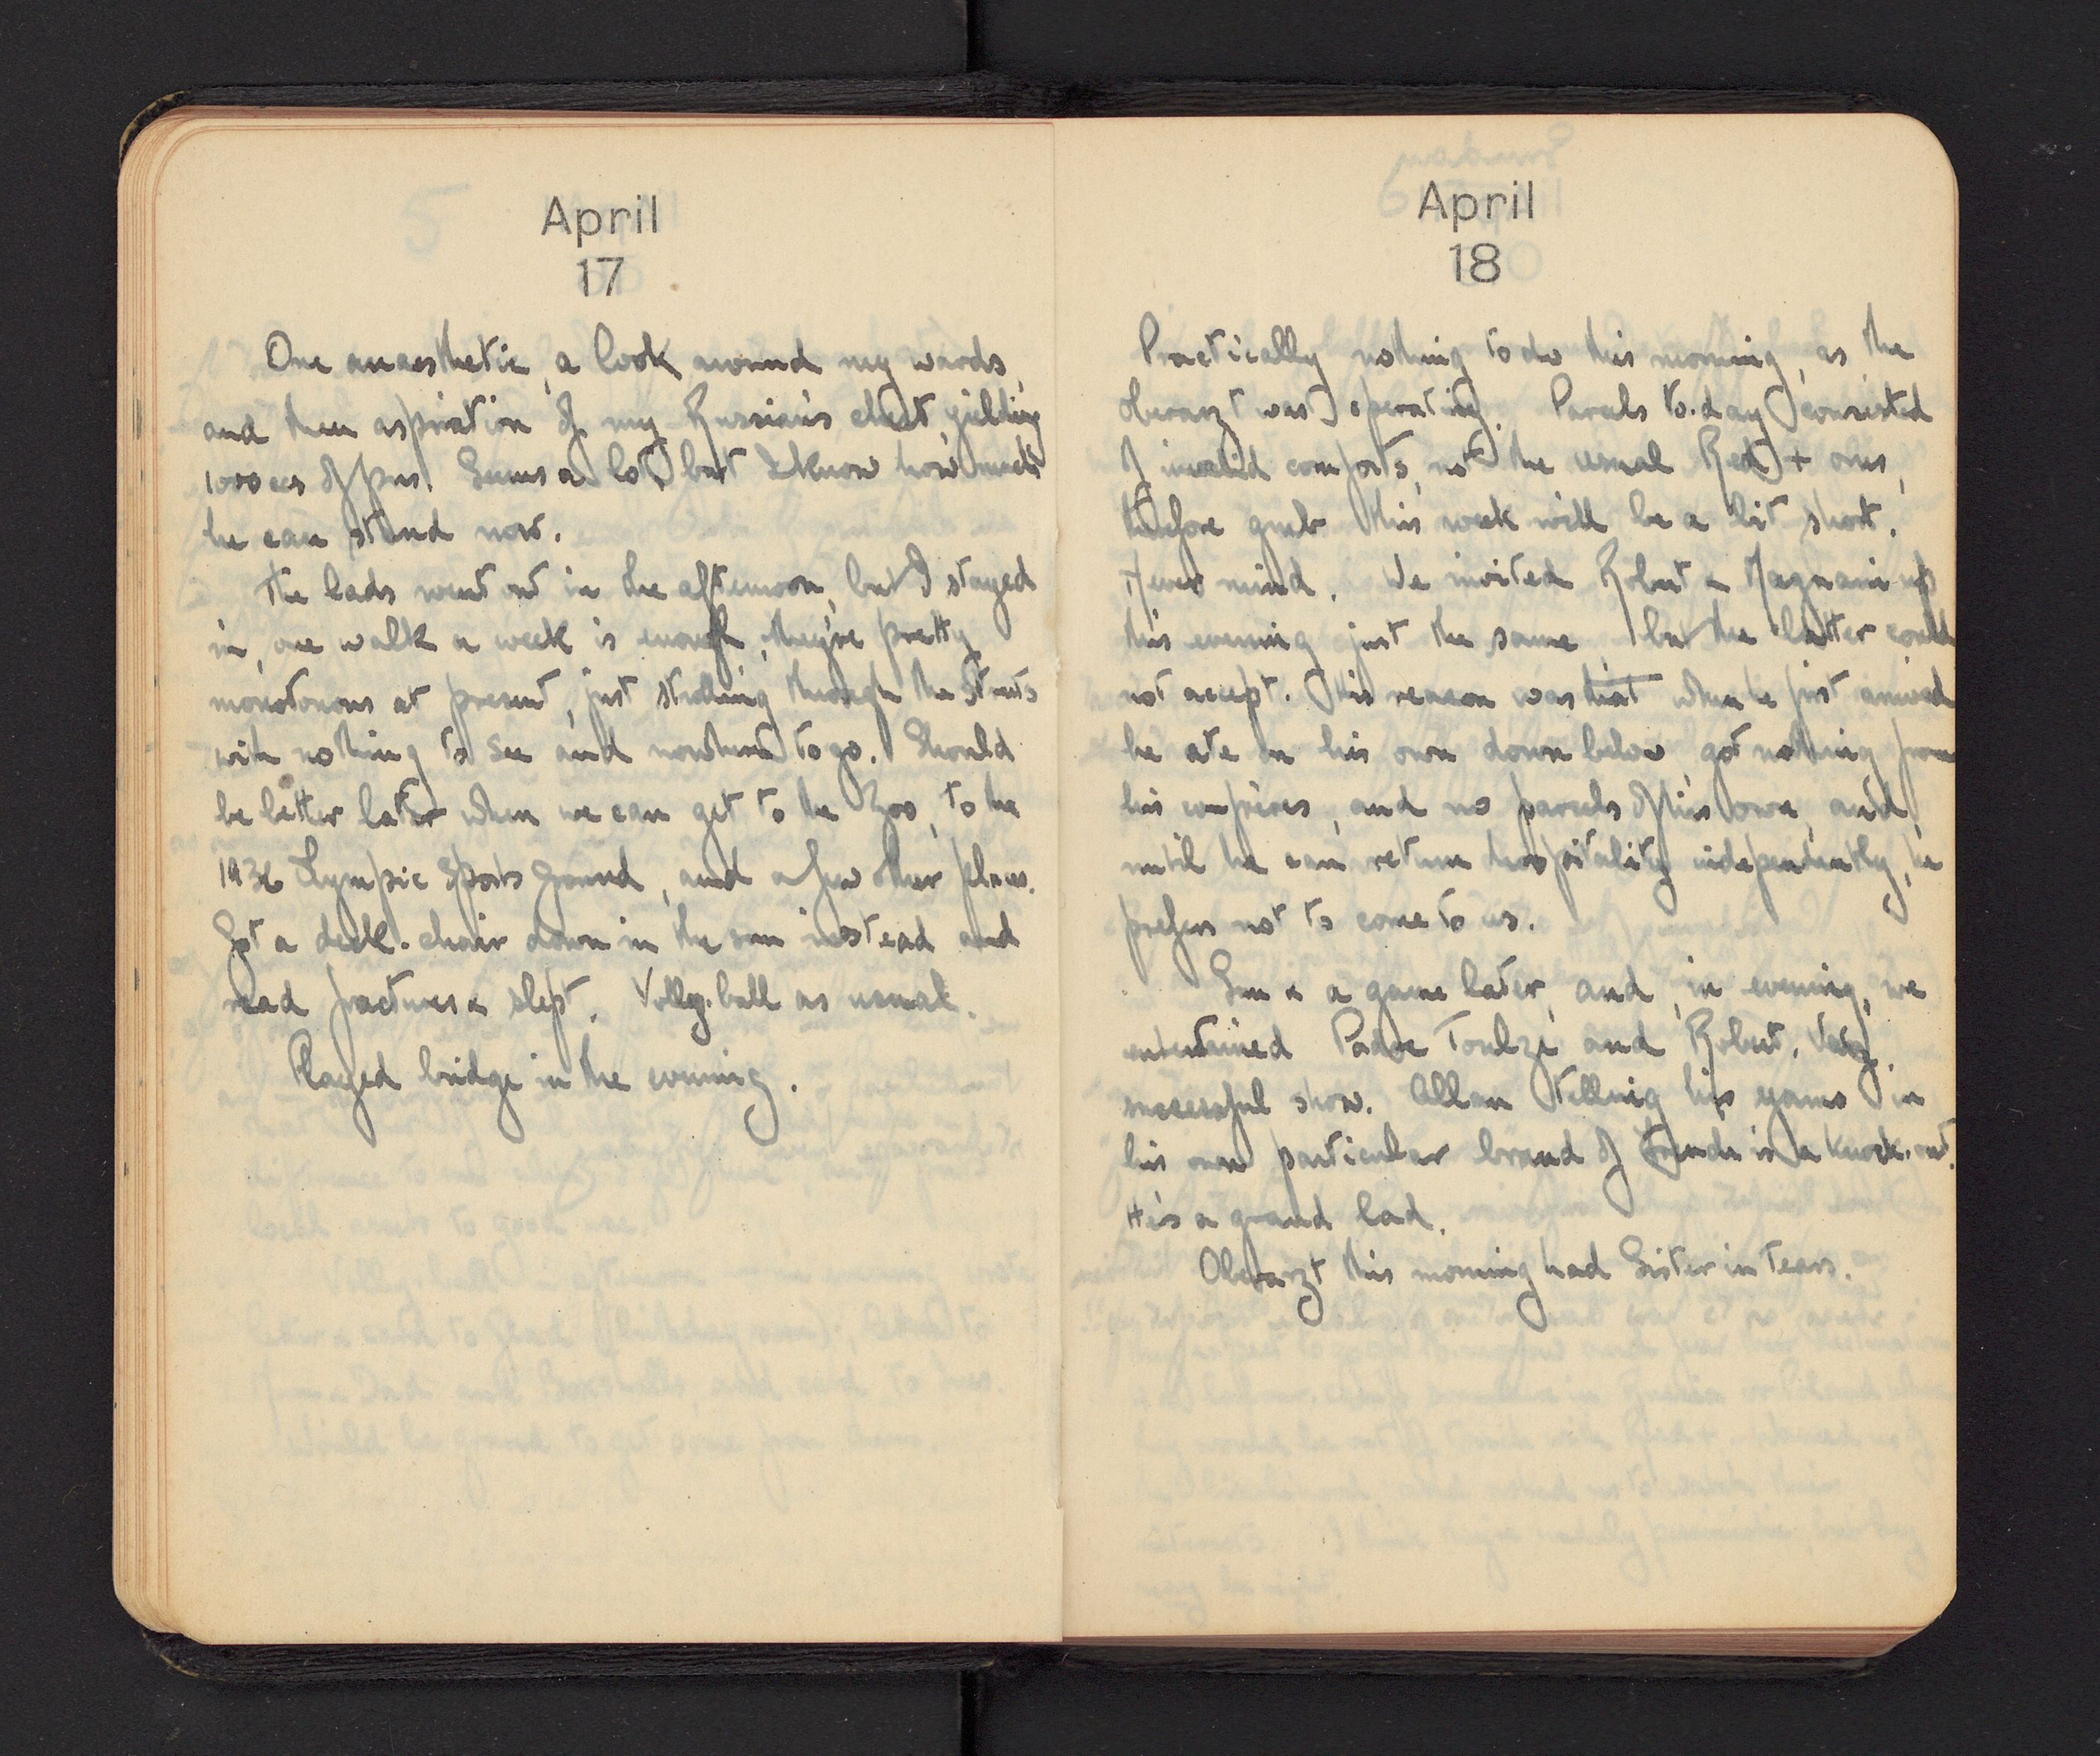 April
17
One anaesthetic, a look around my wards,
and then aspiration of my Russian's chest, yielding
1000 ccs of pus. Seems a lot, but I know how much
he can stand now.
The lads went out in the afternoon, but I stayed
in, one walk a week is enough, they're pretty
monotonous at present, just strolling through the streets
with nothing to see and nowhere to go. Should
be better later when we can get to the Zoo, to the
1936 Olympic Sports Ground, and a few other places.
Got a deck-chair down in the sun instead and
read fractures & slept. Volley-ball as usual.
Played bridge in the evening.
April
18
Practically nothing to do this morning, as the
Oberarzt was operating. Parcels to-day consisted
of invalid comforts, not the usual Red + ones,
therefore grub this week will be a bit short.
Never mind. We invited Robert & Magnani up
this evening just the same, but the latter could
not accept. His reason was that when he first arrived
he ate on his own down below, got nothing from
his confrères, and no parcels of his own, and,
until he can return hospitality independently, he
prefers not to come to us.
Sun & a game later, and, in evening, we
entertained Padre Toulze and Robert. Very
successful show. Allan telling his yarns in
his own particular brand of French is a knock-out.
He's a grand lad.
Oberarzt this morning had Sister in tears.